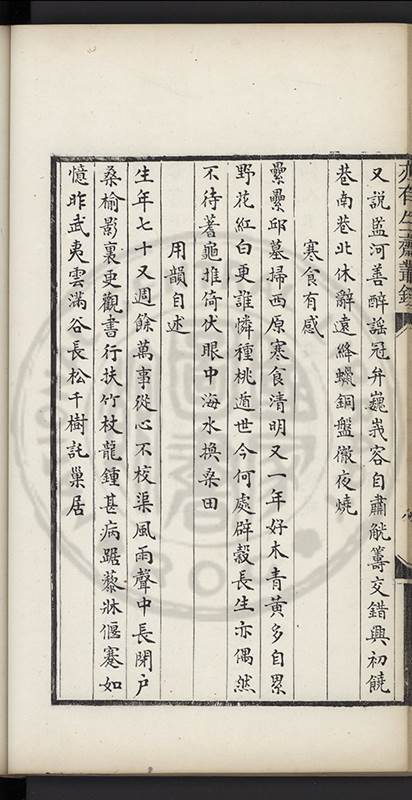 又說藍河善醉謠冠弁巍峩容自肅觥籌交錯興初饒
巷南巷北休辭遠絳蠟銅盤徹夜燒
寒食有感
纍纍邱墓掃西原寒食清明又一年好木青黃多自累
野花紅白更誰憐種桃遁世今何處辟穀長生亦偶然
不待蓍龜推倚伏眼中海水換桑田
用韻自述
生年七十又週餘萬事從心不校渠風雨聲中長閉戶
桑榆影裏更觀書行扶竹杖龍鍾甚病踞藜牀偃蹇如
憶昨武夷雲滿谷長松千樹託巢居